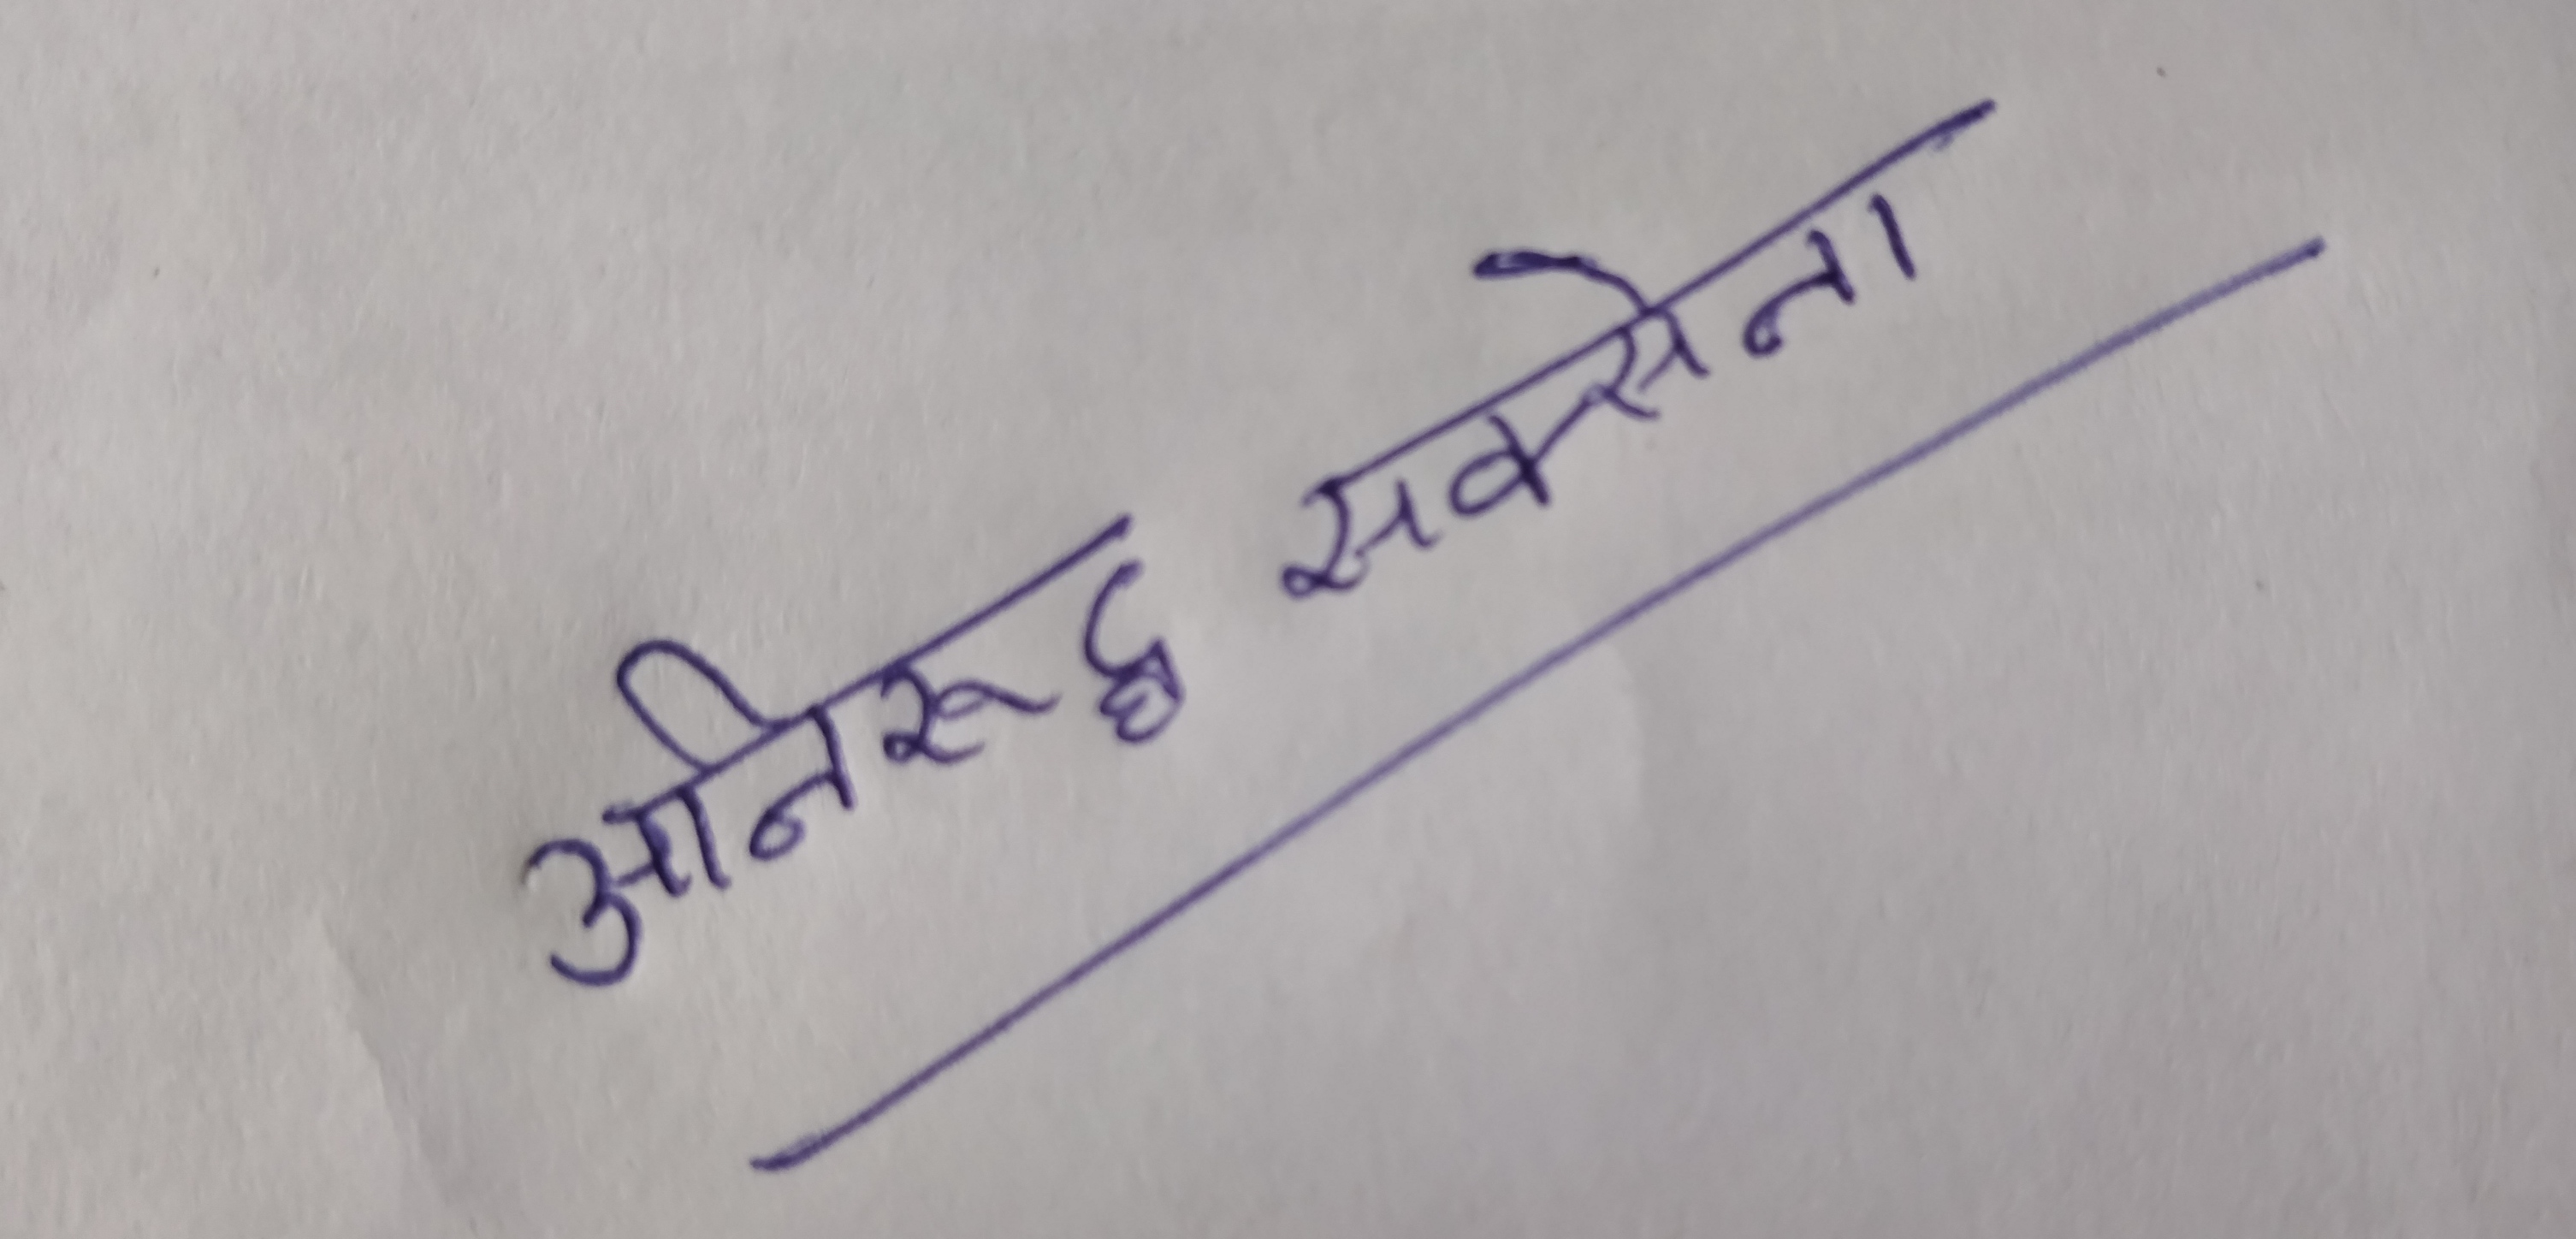 अनिरूद्ध सक्सेना